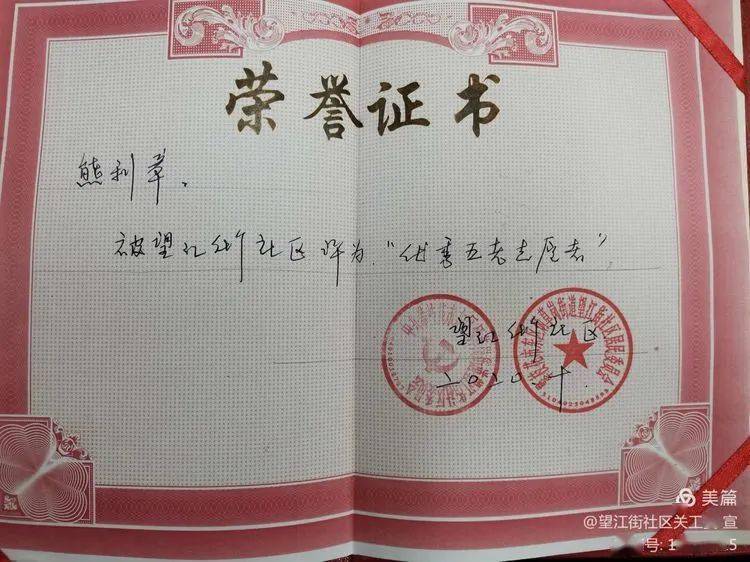 荣誉证书
熊利章、
被望江街社区评为“优秀五老志愿者”,
望江街社区
二〇二〇.十.
美篇
@望江街社区关工
宣
号: 1
5